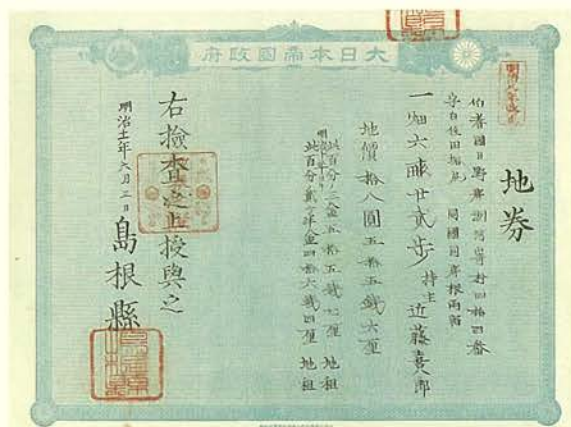 大日本帝國政府
地券
伯耆國日野郡 村四拾四番
同國同郡根雨宿
一畑六畝廿貳歩 持主 近藤喜八郎
地價拾八圓五拾五錢六厘
此百分ノ三金五拾五錢七厘 地租
明治十年ヨリ
此百分ノ貳ケ半金四拾六錢四厘 地租
右檢査之上授與之
明治十一年六月二日
島根縣